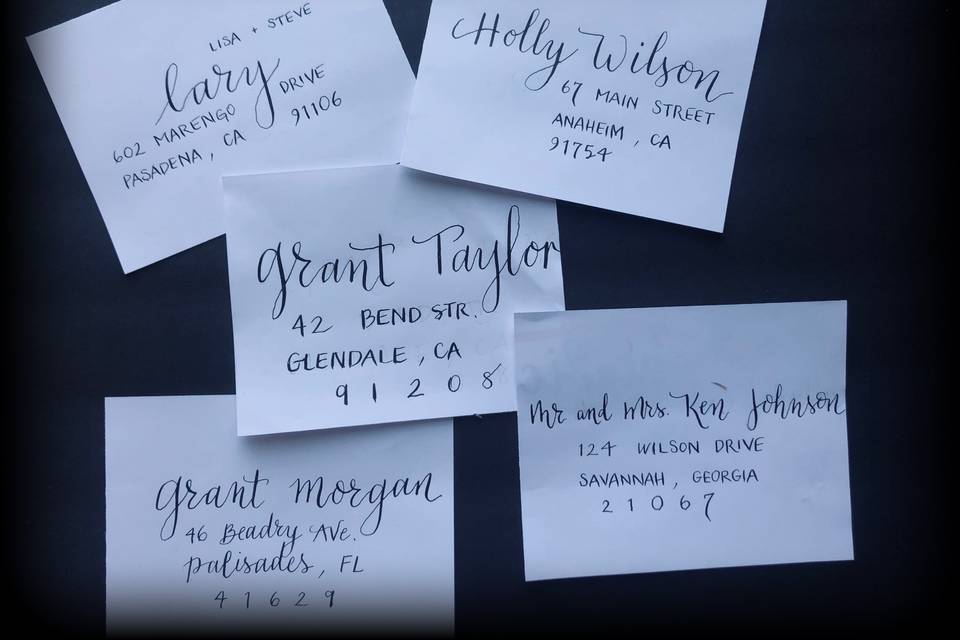 LISA + STEVE
Cary
602 MARENGO DRIVE
PASADENA, CA 91106
Holly Wilson
67 MAIN STREET
ANAHEIM, CA
91754
Grant Taylor
42 BEND STR.
GLENDALE, CA
91208
Mr and Mrs. Ken Johnson
124 WILSON DRIVE
SAVANNAH, GEORGIA
21067
Grant Morgan
46 Beadry AVe.
Palisades, FL
41629